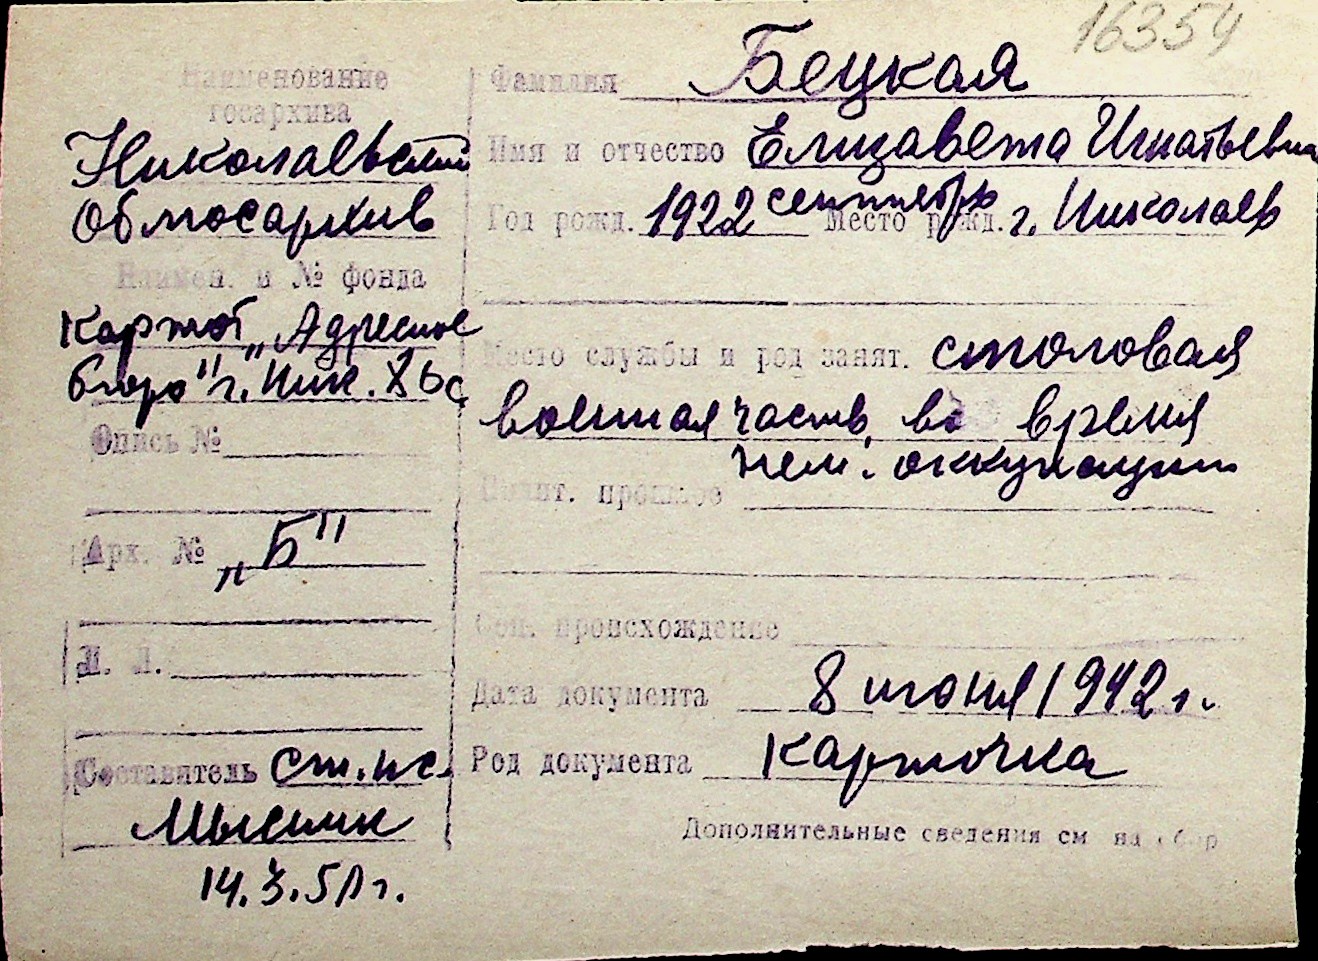 16354
Наименование
госархива
Николаевский
Облгосархив
Наимен. и № фонда
Картот. „Адресное
бюро" г. Ник.
Опись №
Арх. № „Б"
Л. Л.
Составитель ст. н.с.
14.3.51 г.
Фамилия Бецкая
Имя и отчество Елизавета Игнатьевна
Год рожд. 1922 сентябрь Место рожд. г. Николаев
Место службы и род занят. столовая
военная часть, во время
нем. оккупации
Полит. прошлое
Соц. происхождение
Дата документа 8 июня 1942 г.
Род документа карточка
Дополнительные сведения см на обор